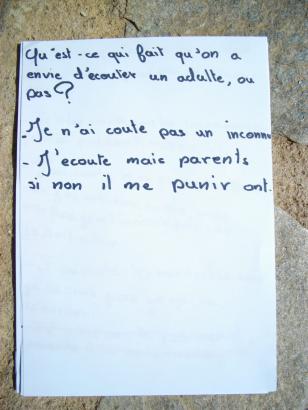 Qu'est-ce qui fait qu'on a
envie d'écouter un adulte, ou
pas?
- Je n'ai coute pas un inconnu
- J'ecoute mais parents
si non il me punir ont.